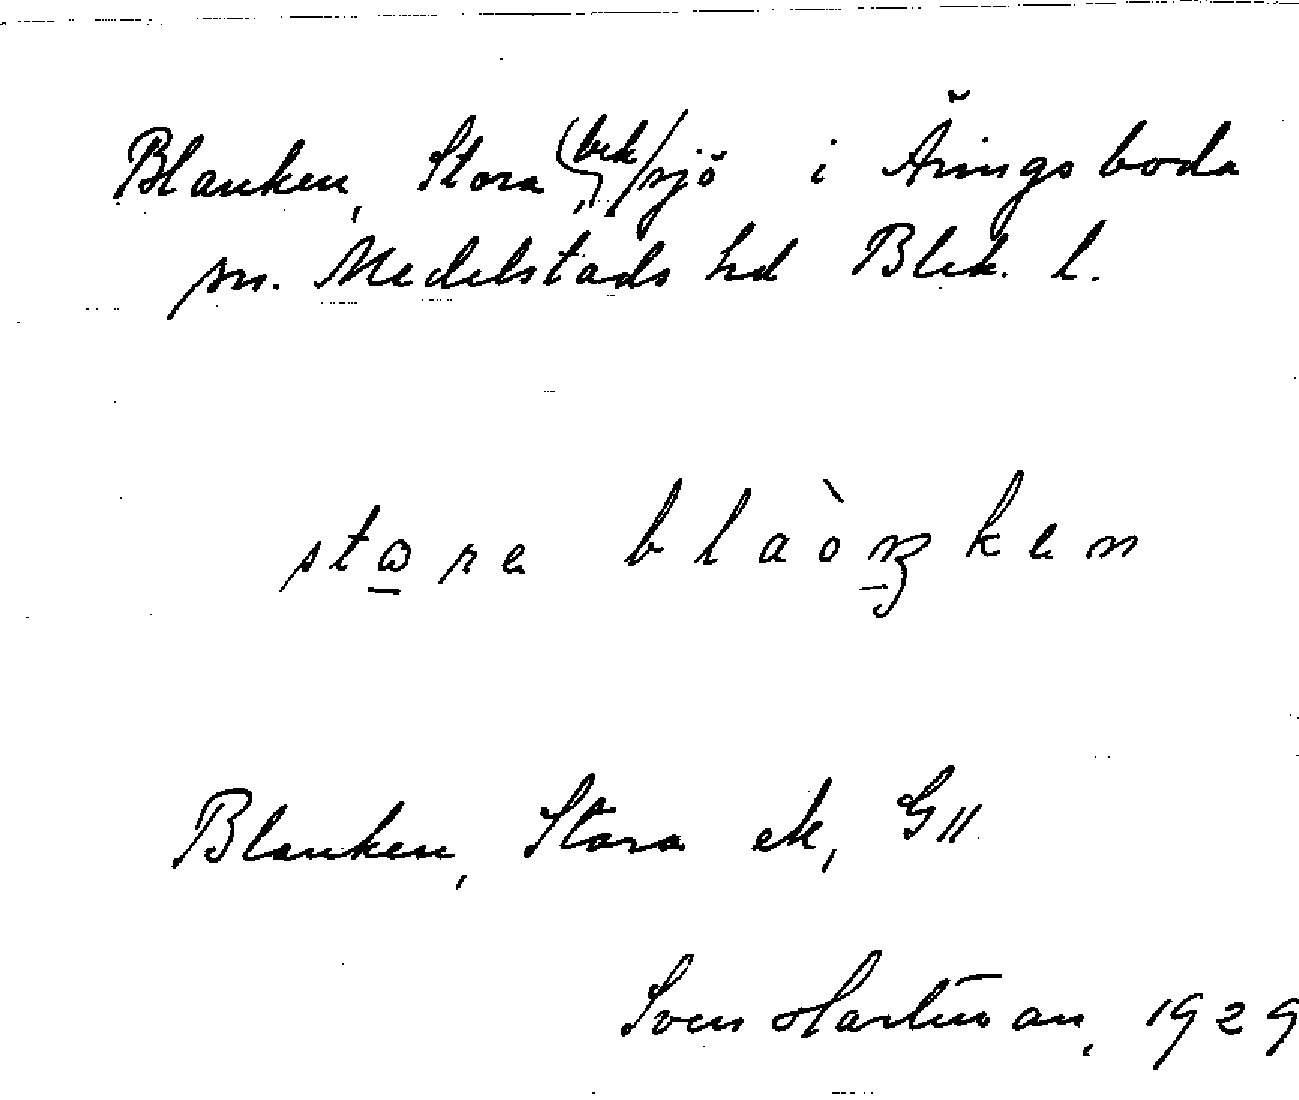 Blanken, Stora (bek), sjö i Åringsboda
sn. Medelstads hd Blek. l.
stɷre blaòŋken
Blanken, Stora ek, G11
Sven Hartman, 1929